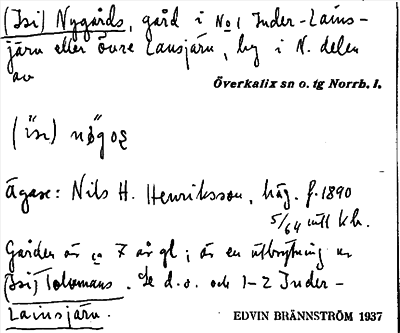 (Isi) Nygårds, gård i No 1 Inder-Lains-
järv eller Övre Lansjärv, by i N. delen
av
Överkalix sn o. tg Norrb. l.
(ïsɩ) nøgoʂ
Ägare: Nils H. Henriksson, häg. f. 1890
5/64 mtl kr.
Gården är ca 7 år gl; är en utbrytning ur
(Isi) Tolvmans. Se d.o. och 1-2 Inder-
Lainsjärv.
EDVIN BRÄNNSTRÖM 1937